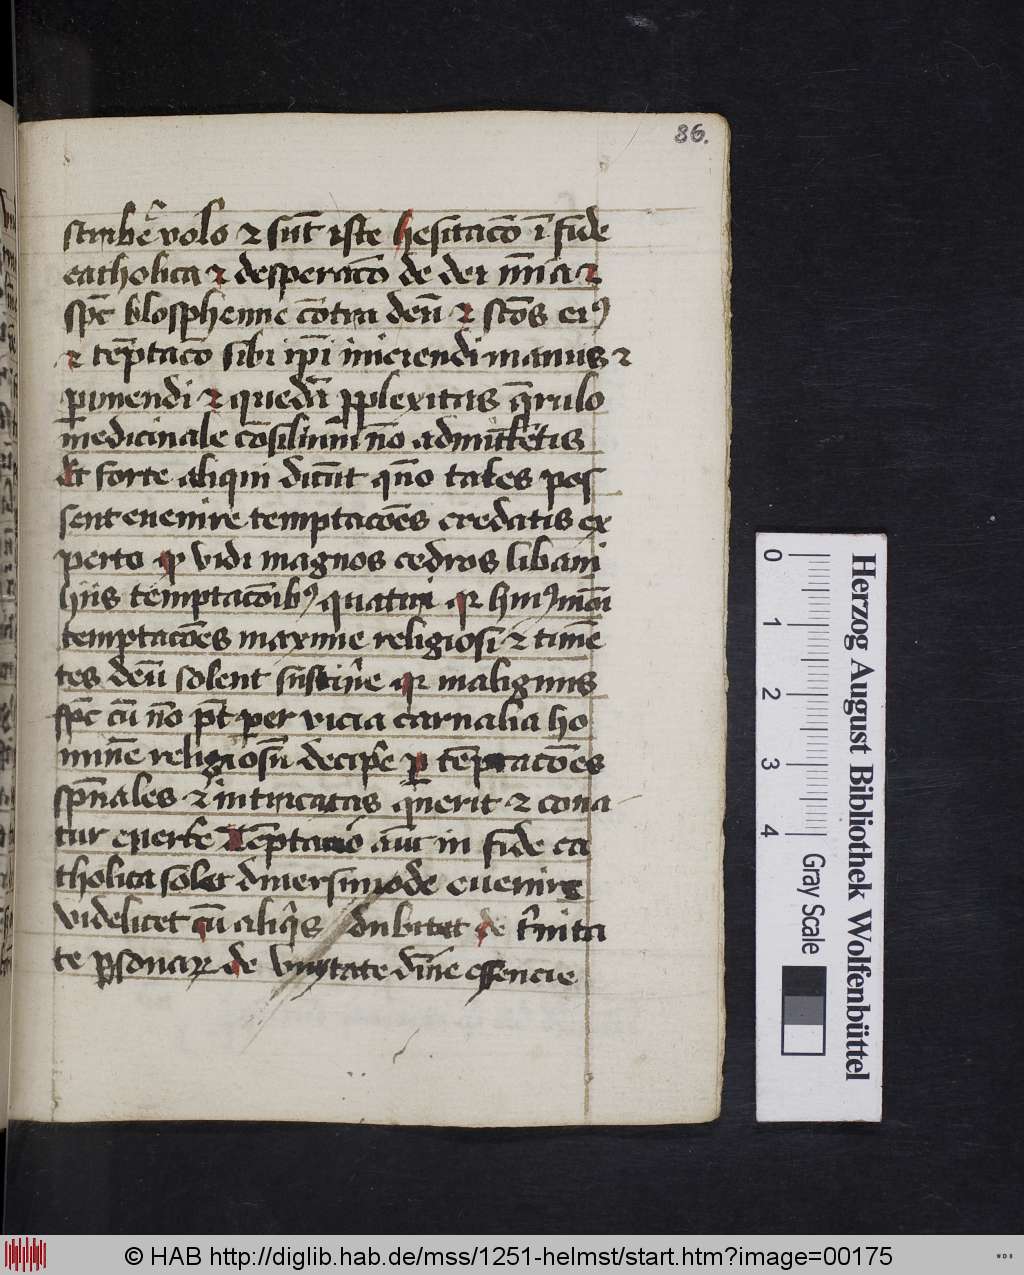 86.
scribe᷑ volo ⁊ sūt iste hesitac̄o ī fide
catholica ⁊ desperac̄o de dei mīa ⁊
sp̄c blosphemie c̄otra deū ⁊ sc̄os eiꝰ
⁊ tēptac̄o sibi ip̄i iniciendi manus ⁊
ꝑimendi ⁊ quedā ꝑplexitas q̄rulo
medicinale cōsiliūm nō admittētis
Et forte aliqui dicūt qn̄o tales pos
sent euenire temptac̄oes credatis ex
perto ꝙ vidi magnos cedros libani
hiis temptac̄oibꝰ quatiūi qꝛ hmꝰmōi
temptac̄oes maxime religiosi ⁊ timē
tes deū solent sustin̄e qꝛ malignus
sp̄c cū nō pōt per vicia carnalia ho
minē religiosū decipe ꝑ tēptac̄oes
sp̄uales ⁊ intricatas querit ⁊ cona
tur euerte Tēptacio aūt in fide ca
tholica solet diuersimode euenire
videlicet cū aliq̄s dubitat de t̄nita
te ꝑsonaꝝ de vnytate diu̅ie essencie
0 1 2 3 4
Herzog August Bibliothek Wolfenbüttel
Gray Scale
© HAB http://diglib.hab.de/mss/1251-helmst/start.htm?image=00175